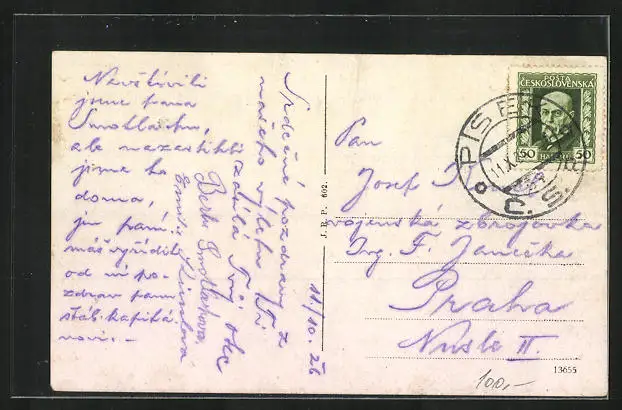 Navštívili
jsme pana
Smotlachu,
ale nezastihli
jsme ho
doma,
jen paní.
máš vyřídit
od ní po-
zdrav panu
štáb. kapitá-
novi. -
Srdečné pozdravy z
našeho výletu Ti
zasílá Tvůj otec
Berta Smotlachova
Emilie
11/10. 26
J. R. P. 602.
POŠTA
ČESKOSLOVENSKÁ
50 HALÉŘŮ 50
PÍSEK
11.X.
Č. S.
Pan
Josef
vojenská zbrojovka
Ing. F. Janečka
Praha
Nusle II.
13655
100,-